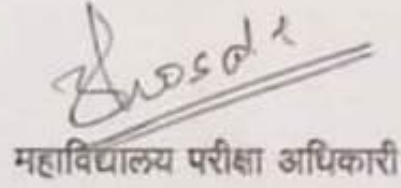 महाविद्यालय परीक्षा अधिकारी